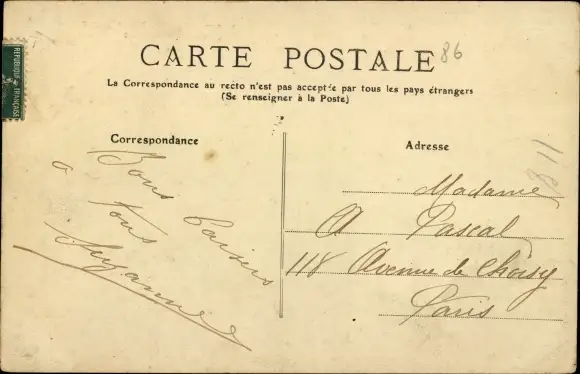 CARTE POSTALE
86
La Correspondance au recto n'est pas acceptée par tous les pays étrangers
(Se renseigner à la Poste)
REPUBLIQUE FRANÇAISE
Correspondance
Bons baisers
à tous
Suzanne
Adresse
Madame
A Pascal
118 Avenue de Choisy
Paris